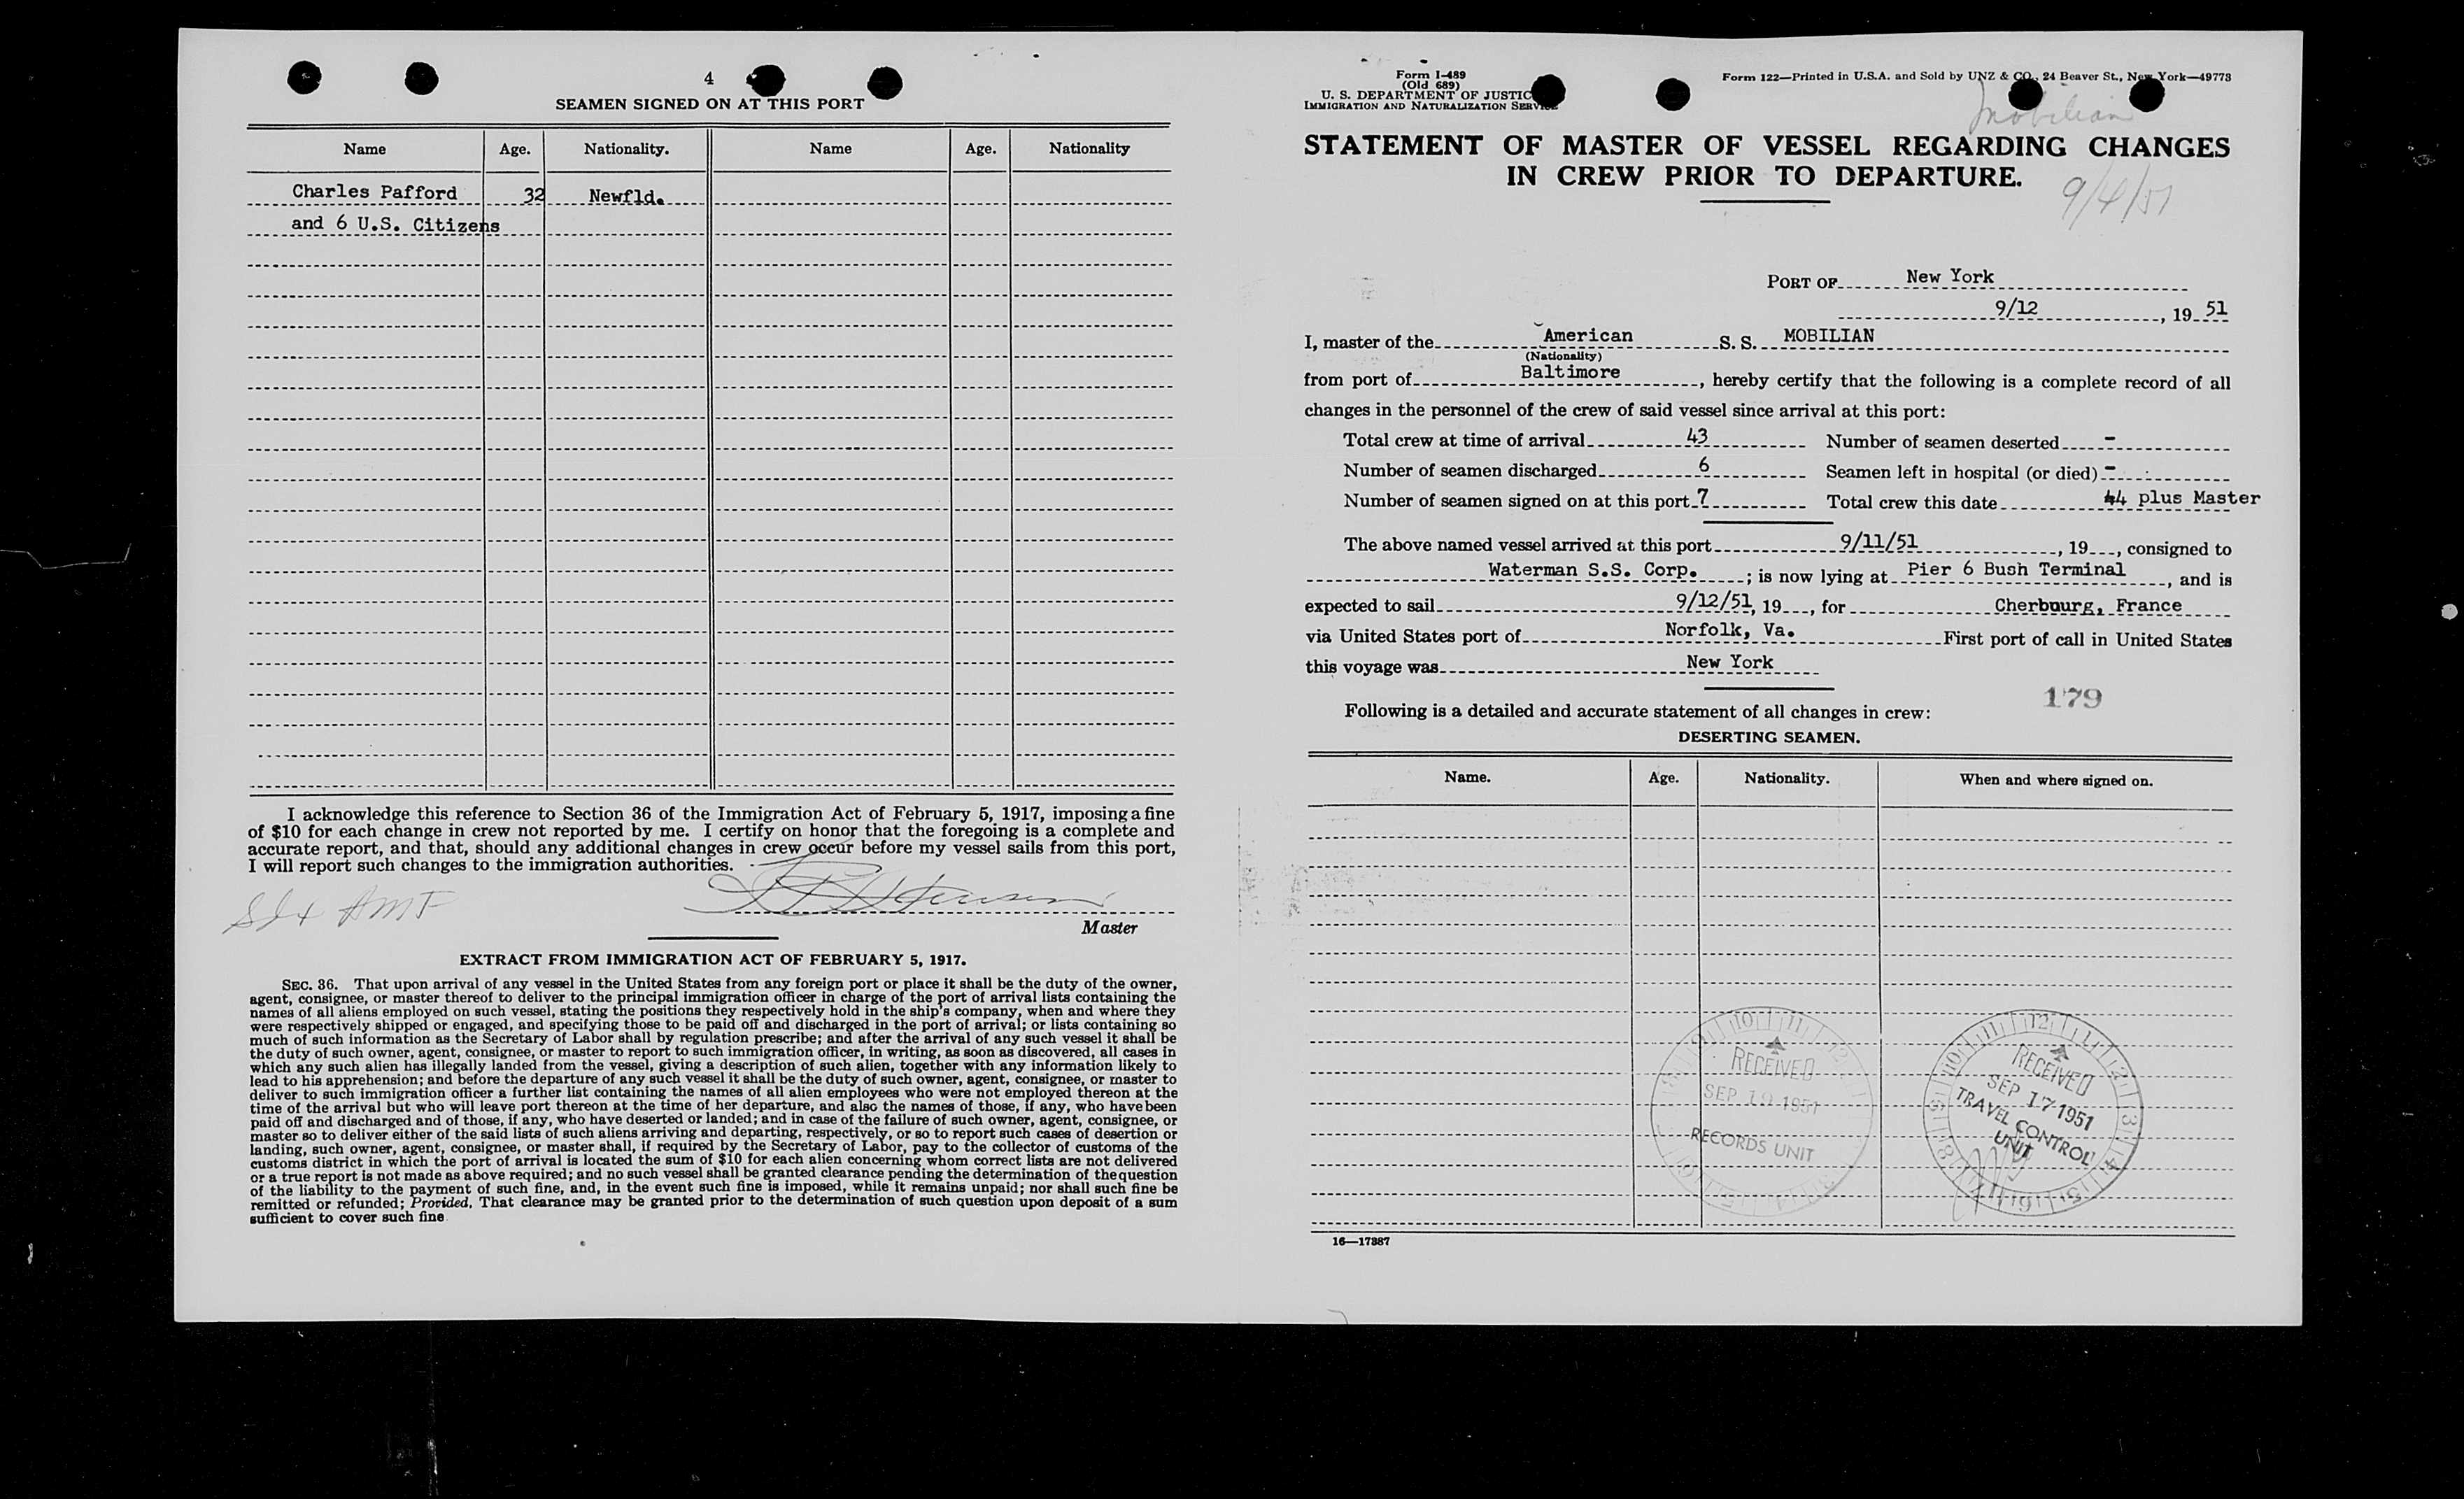 4
SEAMEN SIGNED ON AT THIS PORT
Name Age. Nationality. Name Age. Nationality
Charles Pafford 32 Newfld.
and 6 U.S. Citizens
I acknowledge this reference to Section 36 of the Immigration Act of February 5, 1917, imposing a fine
of $10 for each change in crew not reported by me. I certify on honor that the foregoing is a complete and
accurate report, and that, should any additional changes in crew occur before my vessel sails from this port,
I will report such changes to the immigration authorities.
Master
EXTRACT FROM IMMIGRATION ACT OF FEBRUARY 5, 1917.
SEC. 36. That upon arrival of any vessel in the United States from any foreign port or place it shall be the duty of the owner,
agent, consignee, or master thereof to deliver to the principal immigration officer in charge of the port of arrival lists containing the
names of all aliens employed on such vessel, stating the positions they respectively hold in the ship's company, when and where they
were respectively shipped or engaged, and specifying those to be paid off and discharged in the port of arrival; or lists containing so
much of such information as the Secretary of Labor shall by regulation prescribe; and after the arrival of any such vessel it shall be
the duty of such owner, agent, consignee, or master to report to such immigration officer, in writing, as soon as discovered, all cases in
which any such alien has illegally landed from the vessel, giving a description of such alien, together with any information likely to
lead to his apprehension; and before the departure of any such vessel it shall be the duty of such owner, agent, consignee, or master to
deliver to such immigration officer a further list containing the names of all alien employees who were not employed thereon at the
time of the arrival but who will leave port thereon at the time of her departure, and also the names of those, if any, who have been
paid off and discharged and of those, if any, who have deserted or landed; and in case of the failure of such owner, agent, consignee, or
master so to deliver either of the said lists of such aliens arriving and departing, respectively, or so to report such cases of desertion or
landing, such owner, agent, consignee, or master shall, if required by the Secretary of Labor, pay to the collector of customs of the
customs district in which the port of arrival is located the sum of $10 for each alien concerning whom correct lists are not delivered
or a true report is not made as above required; and no such vessel shall be granted clearance pending the determination of the question
of the liability to the payment of such fine, and, in the event such fine is imposed, while it remains unpaid; nor shall such fine be
remitted or refunded; Provided, That clearance may be granted prior to the determination of such question upon deposit of a sum
sufficient to cover such fine
Form I-489
(Old 689)
U. S. DEPARTMENT OF JUSTIC
IMMIGRATION AND NATURALIZATION SERVICE
Form 122—Printed in U.S.A. and Sold by UNZ & CO., 24 Beaver St., New York—49773
Mobilian
STATEMENT OF MASTER OF VESSEL REGARDING CHANGES
IN CREW PRIOR TO DEPARTURE.
9/4/51
PORT OF New York
9/12, 19 51
I, master of the American S. S. MOBILIAN
(Nationality)
from port of Baltimore, hereby certify that the following is a complete record of all
changes in the personnel of the crew of said vessel since arrival at this port:
Total crew at time of arrival 43 Number of seamen deserted -
Number of seamen discharged 6 Seamen left in hospital (or died) -
Number of seamen signed on at this port 7 Total crew this date 44 plus Master
The above named vessel arrived at this port 9/11/51, 19, consigned to
Waterman S.S. Corp.; is now lying at Pier 6 Bush Terminal, and is
expected to sail 9/12/51, 19, for Cherbourg, France
via United States port of Norfolk, Va. First port of call in United States
this voyage was New York
179
Following is a detailed and accurate statement of all changes in crew:
DESERTING SEAMEN.
Name. Age. Nationality. When and where signed on.
RECEIVED
SEP 19 1951
RECORDS UNIT
RECEIVED
SEP 17 1951
TRAVEL CONTROL
UNIT
16—17387